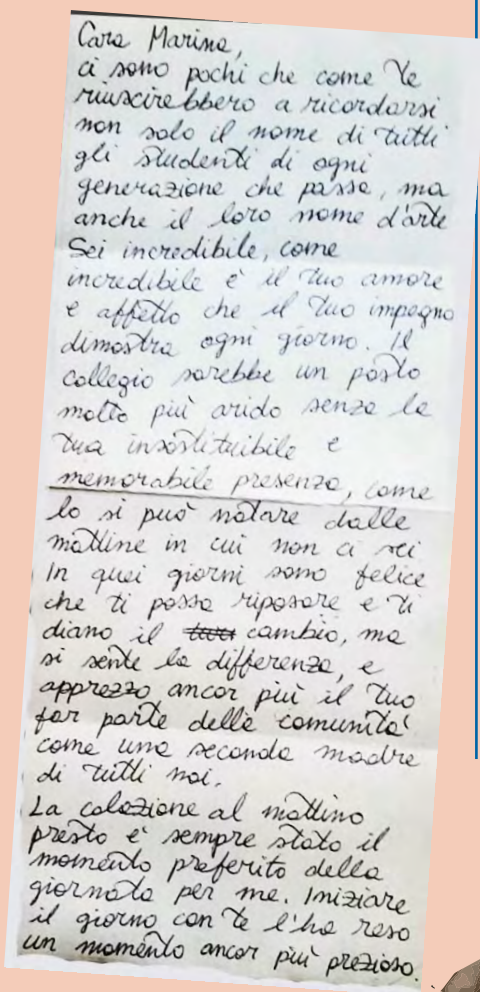 Cara Marina,
ci sono pochi che come te
riuscirebbero a ricordarsi
non solo il nome di tutti
gli studenti di ogni
generazione che passa, ma
anche il loro nome d'arte
Sei incredibile, come
incredibile è il tuo amore
e affetto che il tuo impegno
dimostra ogni giorno. Il
collegio sarebbe un posto
molto più arido senza la
tua insostituibile e
memorabile presenza, come
lo si può notare dalle
mattine in cui non ci sei
In quei giorni sono felice
che ti possa riposare e ti
diano il cambio, ma
si sente la differenza, e
apprezzo ancor più il tuo
far parte delle comunità
come una seconda madre
di tutti noi.
La colazione al mattino
presto è sempre stato il
momento preferito della
giornata per me. Iniziare
il giorno con te l'ha reso
un momento ancor più prezioso.